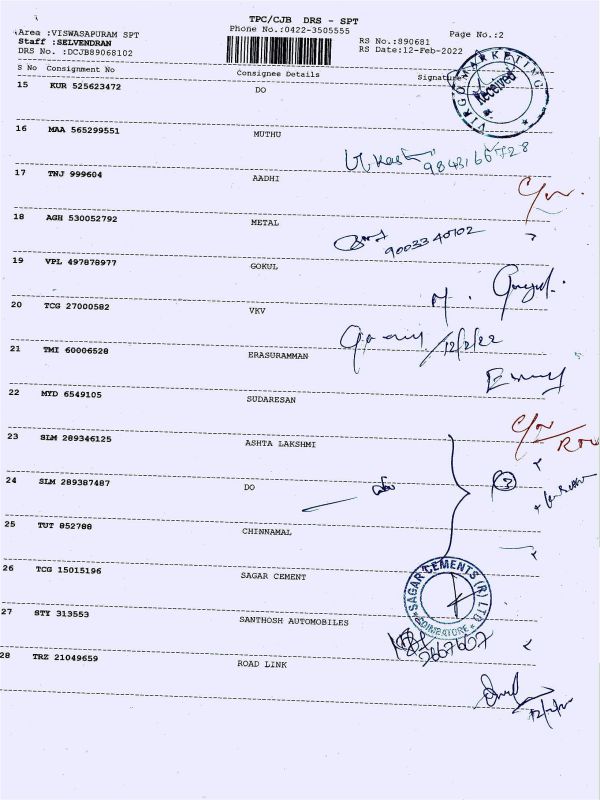 TPC/CJB DRS - SPT
Area :VISWASAPURAM SPT
Phone No.:0422-3505555
Page No.:2
Staff :SELVENDRAN
RS No.:890681
DRS No. :DCJB89068102
RS Date:12-Feb-2022
S No Consignment No Consignee Details Signature
15 KUR 525623472 DO
VIRGO MARKETING
Received
16 MAA 565299551 MUTHU
9843166728
17 TNJ 999604 AADHI
18 AGH 530052792 METAL
90033 40102
19 VPL 497878977 GOKUL
20 TCG 27000582 VKV
12/2/22
21 TMI 60006528 ERASURAMMAN
22 MYD 6549105 SUDARESAN
23 SLM 289346125 ASHTA LAKSHMI
24 SLM 289387487 DO
25 TUT 852788 CHINNAMAL
26 TCG 15015196 SAGAR CEMENT
SAGAR CEMENTS (R) LTD
COIMBATORE
27 STY 313553 SANTHOSH AUTOMOBILES
28 TRZ 21049659 ROAD LINK